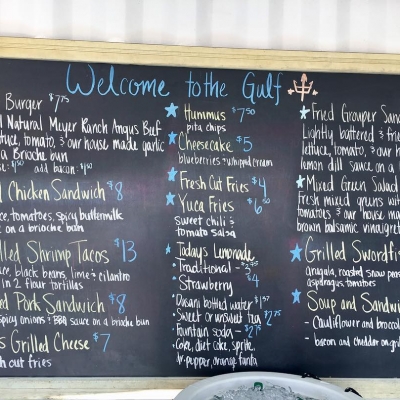 Welcome to the Gulf
Burger $7.75
Natural Meyer Ranch Angus Beef
tuce, tomato, & our house made garlic
a Brioche bun
add bacon
Chicken Sandwich $8
ce, tomatoes, spicy buttermilk
e on a brioche bun
lled Shrimp Tacos $13
uce, black beans, lime & cilantro
in 2 flour tortillas
ed Pork Sandwich $8
spicy onions & BBQ sauce on a brioche bun
s Grilled Cheese $7
h cut fries
Hummus $7.50
pita chips
Cheesecake $5
blueberries & whipped cream
Fresh Cut Fries $4
Yuca Fries $6
sweet chili &
tomato salsa
Todays Lemonade
Traditional
Strawberry $4
Dasani bottled water
Sweet or unsweet tea $2.75
Fountain soda - $2.75
Coke, diet coke, sprite,
dr. pepper, orange fanta
Fried Grouper San
Lightly battered & frie
lettuce, tomato, & our h
lemon dill sauce on a
Mixed Green Salad
Fresh mixed greens wit
tomatoes & our house ma
brown balsamic vinaigret
Grilled Swordfis
arugula, roasted snow peas
asparagus, tomatoes
Soup and Sandwi
- Cauliflower and broccol
- bacon and cheddar on gri